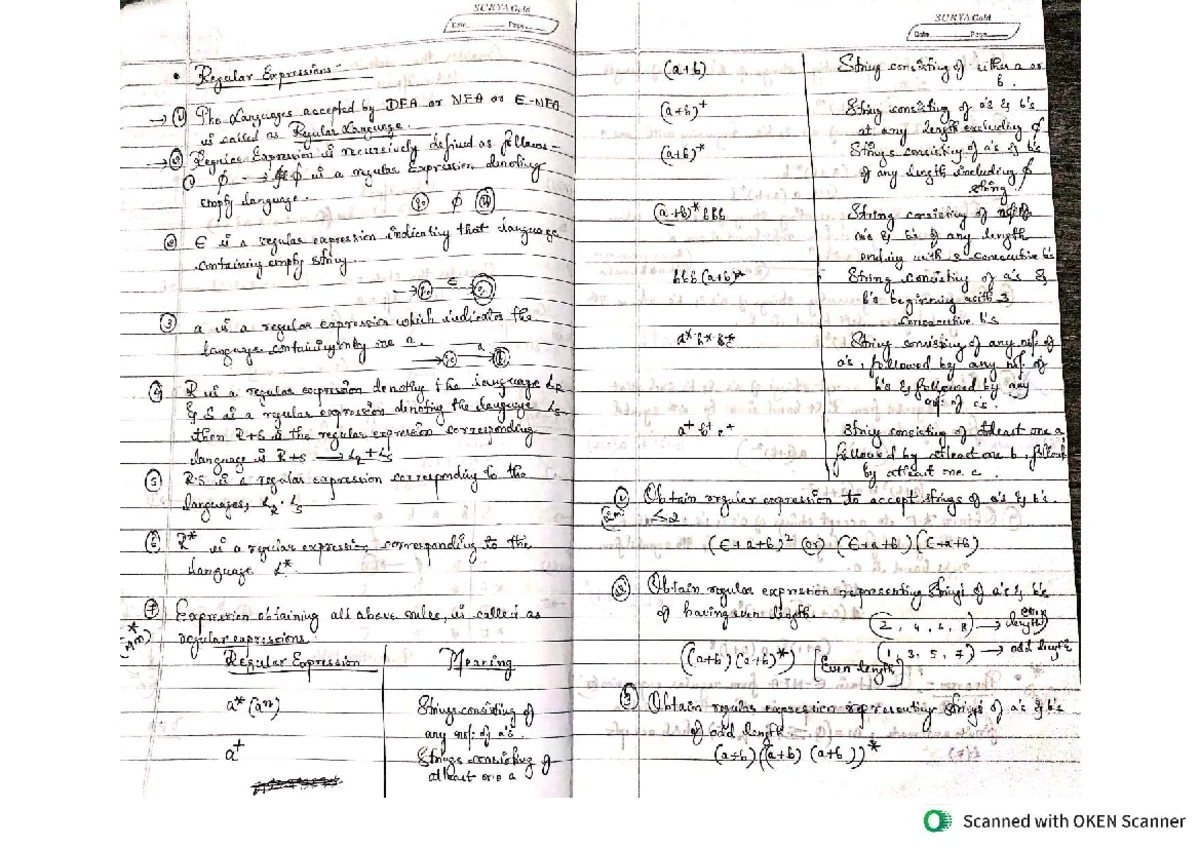 SURYA Gold
Date Page
• Regular Expressions:-
→ ① The Languages accepted by DFA or NFA or E-NFA
is called as Regular Language.
→ ② Regular Expression is recursively defined as follows-
① ϕ → ϕ is a regular Expression denoting
empty language.
q₀ ϕ
② ϵ is a regular expression indicating that language
containing empty string.
→ q₀ ϵ
③ a is a regular expression which indicates the
language containing only one a.
→ a
④ R is a regular expression denoting the language L_R
& S is a regular expression denoting the language L_S
then R+S is the regular expression corresponding
language is R+S → L_R + L_S
⑤ R.S is a regular expression corresponding to the
languages, L_R . L_S
⑥ R* is a regular expression corresponding to the
language L*.
⑦ Expression obtaining all above rules, is called as
regular expressions.
* (4m)
Regular Expression Meaning
a* (aⁿ) Strings consisting of
any no: of a's.
a⁺ Strings consisting of
atleast one a
SURYA Gold
Date Page
(a+b) String consisting of either a or
b.
(a+b)⁺ String consisting of a's & b's
at any length excluding ϕ
(a+b)* Strings consisting of a's & b's
of any length including ϕ
string.
(a+b)* bbb String consisting of
a's & b's of any length
ending with 3 consecutive b's
bbb (a+b)* String consisting of a's &
b's beginning with 3
consecutive b's
a* b* c* String consisting of any no: of
a's, followed by any no: of
b's & followed by any
no: of c's.
a⁺ b⁺ c⁺ String consisting of atleast one a
followed by atleast one b, follow
by atleast one c.
① Obtain regular expression to accept strings of a's & b's
(2m) ≤2.
(ϵ+a+b)² (or) (ϵ+a+b) (ϵ+a+b)
② Obtain regular expression representing strings of a's & b's
of having even length. (2, 4, 6, 8) → even length
((a+b) (a+b)*) [Even length] (1, 3, 5, 7) → odd length
③ Obtain regular expression representing strings of a's & b's
of odd length
(a+b) ((a+b) (a+b))*
Scanned with OKEN Scanner